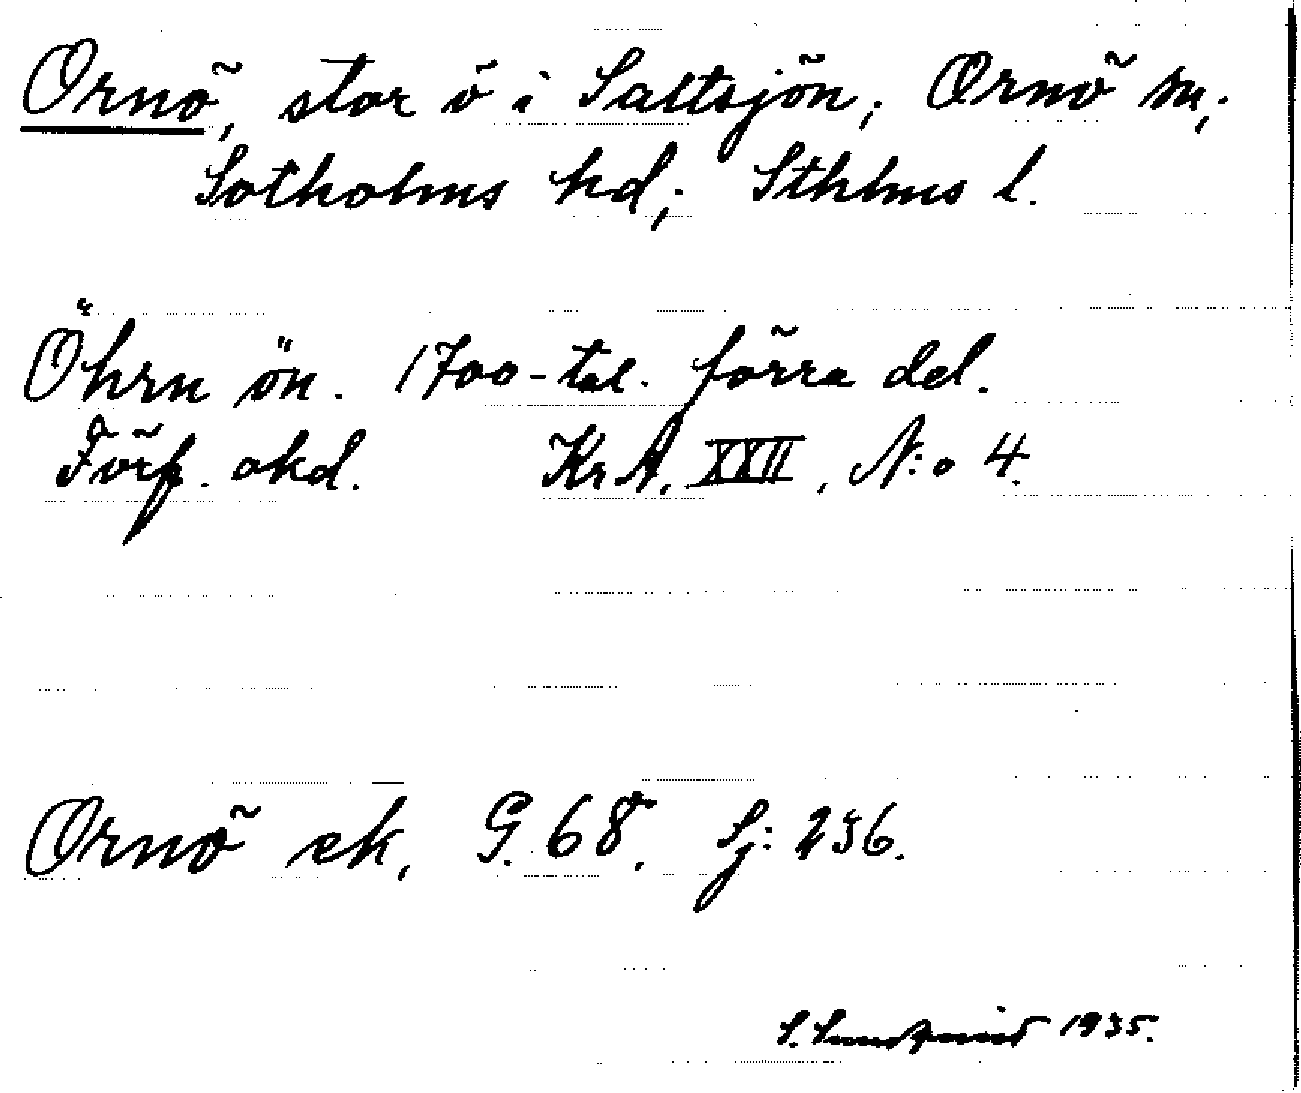 Ornö, stor ö i Saltsjön; Ornö sn;
Sotholms hd; Sthlms l.
Öhrn ön. 1700-tal. förra del.
Förf. okd. Kr.A. XXII, N:o 4.
Ornö sk, G. 68, Sj: 236.
S. Lundqvist 1935.